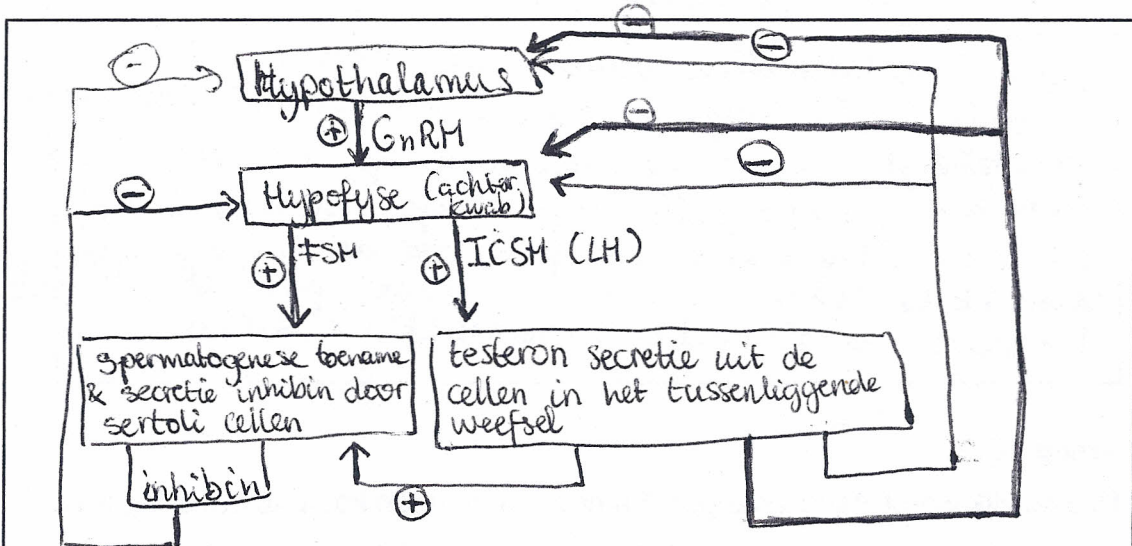 Hypothalamus
GnRH
Hypofyse (achter
kwab)
FSH
ICSH (LH)
spermatogenese toename
& secretie inhibin door
sertoli cellen
testeron secretie uit de
cellen in het tussenliggende
weefsel
inhibin